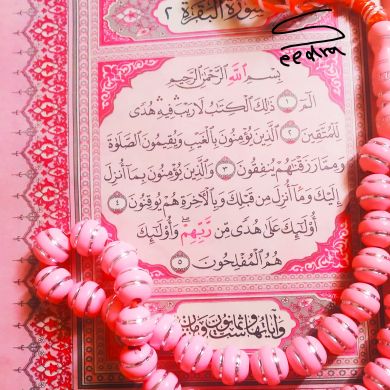 سورة البقرة ٢
بسم الله الرحمن الرحيم
الم ١ ذلك الكتب لا ريب فيه هدى
للمتقين ٢ الذين يؤمنون بالغيب ويقيمون الصلوة
ومما رزقنهم ينفقون ٣ والذين يؤمنون بما أنزل
إليك وما أنزل من قبلك وبالآخرة هم يوقنون ٤
أولئك على هدى من ربهم وأولئك
هم المفلحون ٥
وآياتها ست وثمانون ومائتان